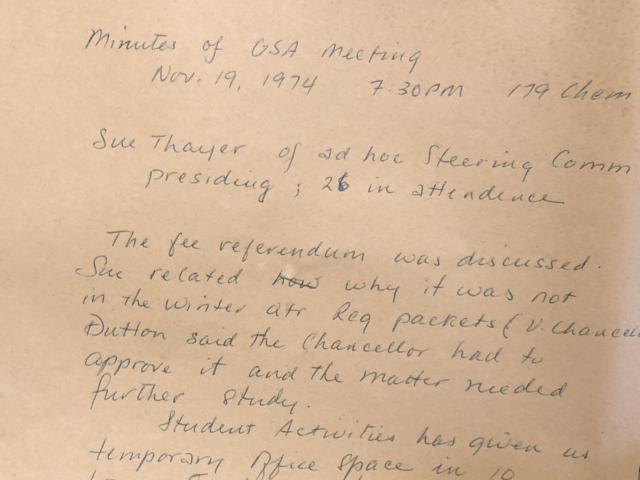 Minutes of GSA Meeting
Nov. 19, 1974 7:30PM 179 Chem
Sue Thayer of ad hoc Steering Comm
presiding; 26 in attendence
The fee referendum was discussed.
Sue related how why it was not
in the winter qtr Reg packets (V. Chancell
Dutton said the Chancellor had to
approve it and the matter needed
further study.
Student Activities has given us
temporary office space in 10